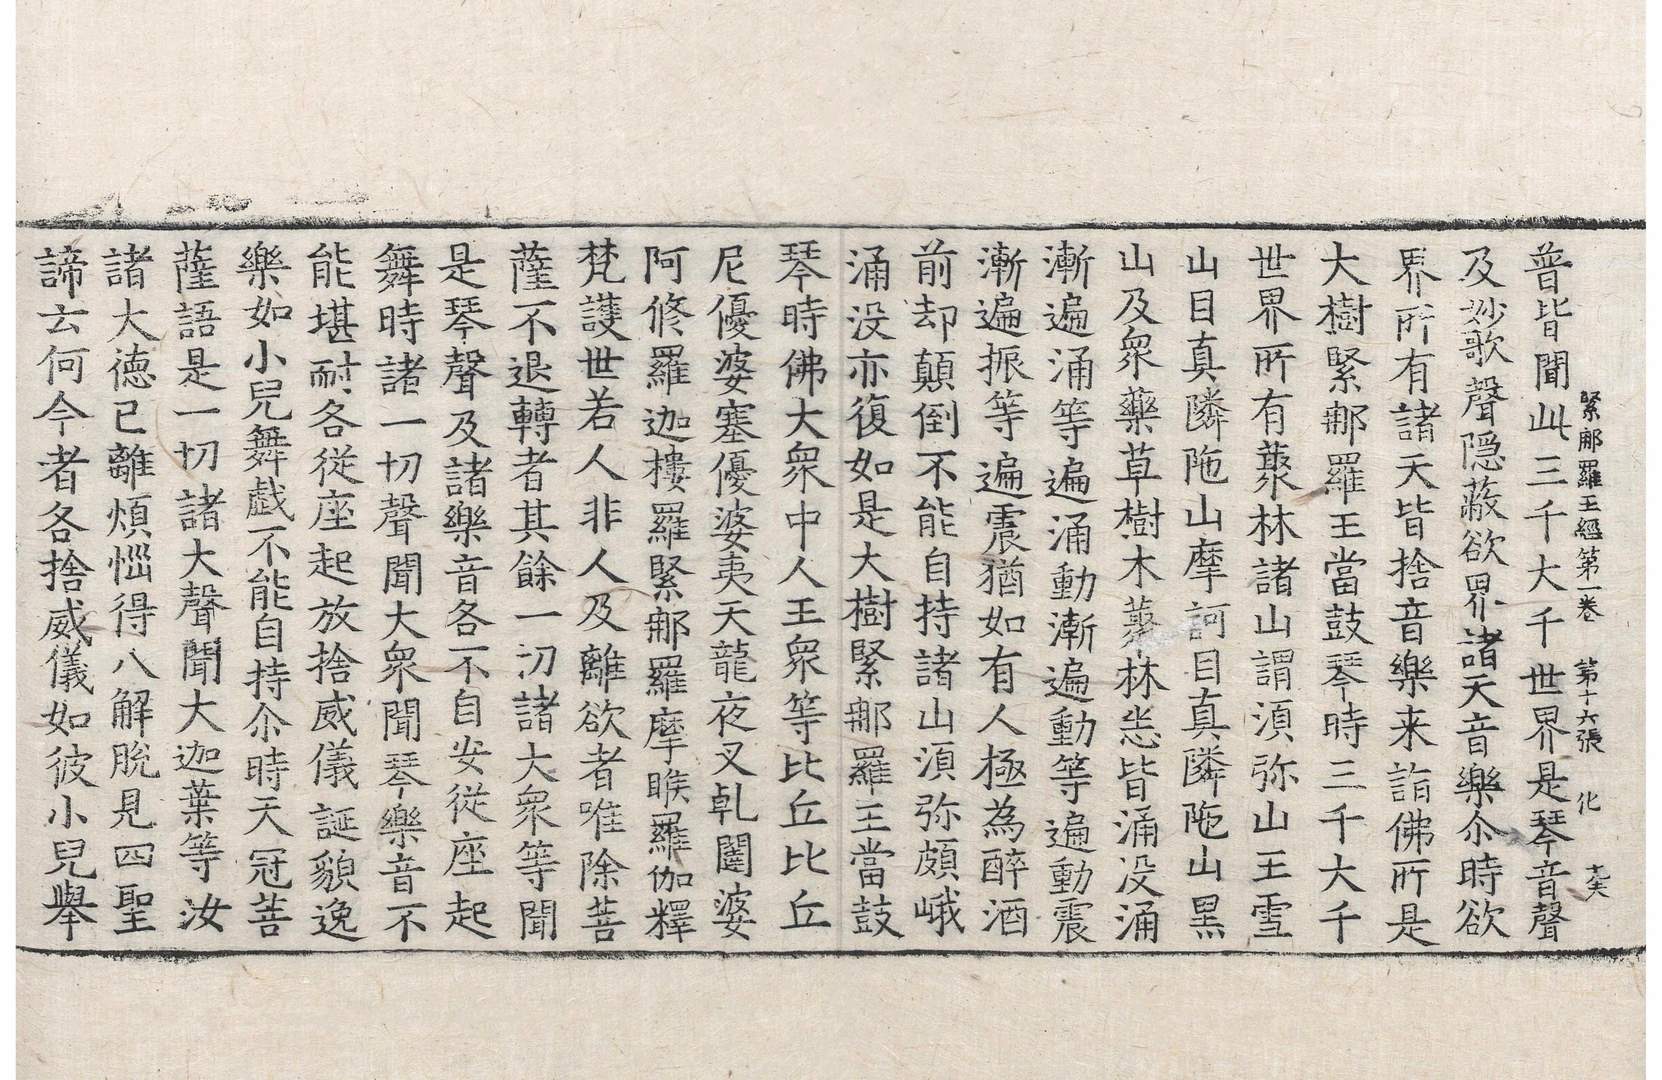 緊那羅王經第一卷 第十六張 化 十六
普皆聞此三千大千世界是琴音聲
及妙歌聲隱蔽欲界諸天音樂尒時欲
界所有諸天皆捨音樂来詣佛所是
大樹緊那羅王當鼓琴時三千大千
世界所有䕺林諸山謂湏弥山王雪
山目真隣陁山摩訶目真隣陁山黒
山及衆藥草樹木䕺林悉皆涌没涌
漸遍涌等遍涌動漸遍動等遍動震
漸遍振等遍震猶如有人極為醉酒
前却顛倒不能自持諸山湏弥頗峨
涌没亦復如是大樹緊那羅王當鼓
琴時佛大衆中人王衆等比丘比丘
尼優婆塞優婆夷天龍夜叉乹闥婆
阿修羅迦樓羅緊那羅摩睺羅伽釋
梵護世若人非人及離欲者唯除菩
薩不退轉者其餘一切諸大衆等聞
是琴聲及諸樂音各不自安從座起
舞時諸一切聲聞大衆聞琴樂音不
能堪耐各從座起放捨威儀誕貌逸
樂如小兒舞戯不能自持尒時天冠菩
薩語是一切諸大聲聞大迦葉等汝
諸大德已離煩惱得八解脫見四聖
諦云何今者各捨威儀如彼小兒舉